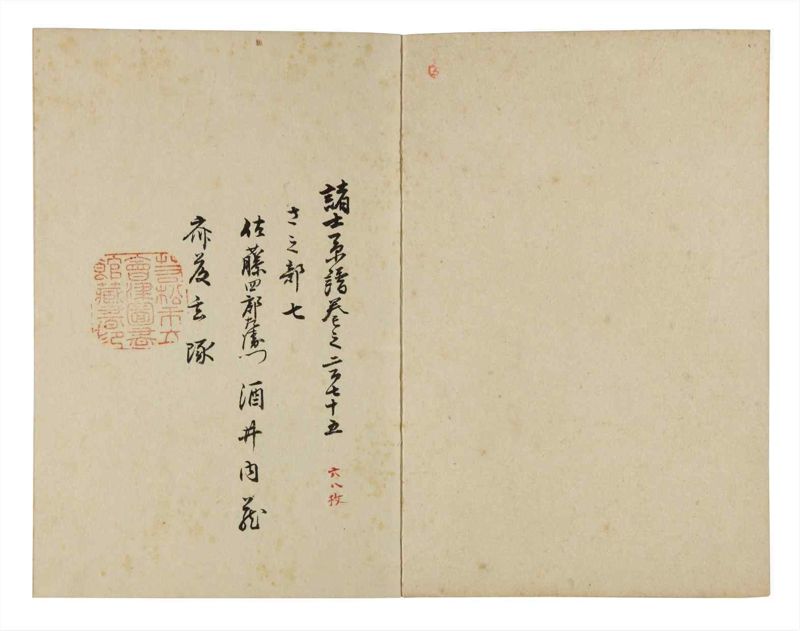 諸士系譜巻之二百七十五
六八枚
さ之部七
佐藤四郎左衛門 酒井内蔵
斎藤玄琢
若松市立
會津圖書
館藏書印